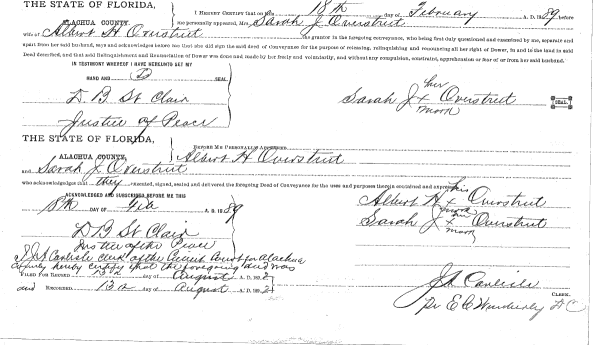 THE STATE OF FLORIDA,
ALACHUA COUNTY.
I HEREBY CERTIFY that on this 18th day of February A. D. 1889, before
me personally appeared, Mrs Sarah J Overstreet
wife of Albert H Overstreet the grantor in the foregoing conveyance, who being first duly questioned and examined by me, separate and
apart from her said husband, says and acknowledges before me that she did sign the said deed of Conveyance for the purpose of releasing, relinquishing and renouncing all her right of Dower, in and to the land in said
Deed described, and that said Relinquishment and Renunciation of Dower was done and made by her freely and voluntarily, and without any compulsion, constraint, apprehension or fear of or from her said husband.
IN TESTIMONY WHEREOF I HAVE HEREUNTO SET MY
HAND AND SEAL
D B St Clair
Justice of Peace
her
Sarah J x Overstreet SEAL
mark
THE STATE OF FLORIDA,
ALACHUA COUNTY,
BEFORE ME PERSONALLY APPEARED
Albert H Overstreet
and Sarah J Overstreet
who acknowledged that they executed, signed, sealed and delivered the foregoing Deed of Conveyance for the uses and purposes therein contained and expressed
ACKNOWLEDGED AND SUBSCRIBED BEFORE ME THIS
18th DAY OF Feb A. D. 1889
his
Albert H x Overstreet
mark
her
Sarah J x Overstreet
mark
D B St Clair
Justice of the Peace
Carlisle clerk of the Circuit Court for Alachua
County hereby certify that the foregoing deed was
FILED FOR RECORD 13th day of August A. D. 189
and RECORDED 13th day of August A. D. 189
J A Carlisle
CLERK.
Per E C Wimberley D C